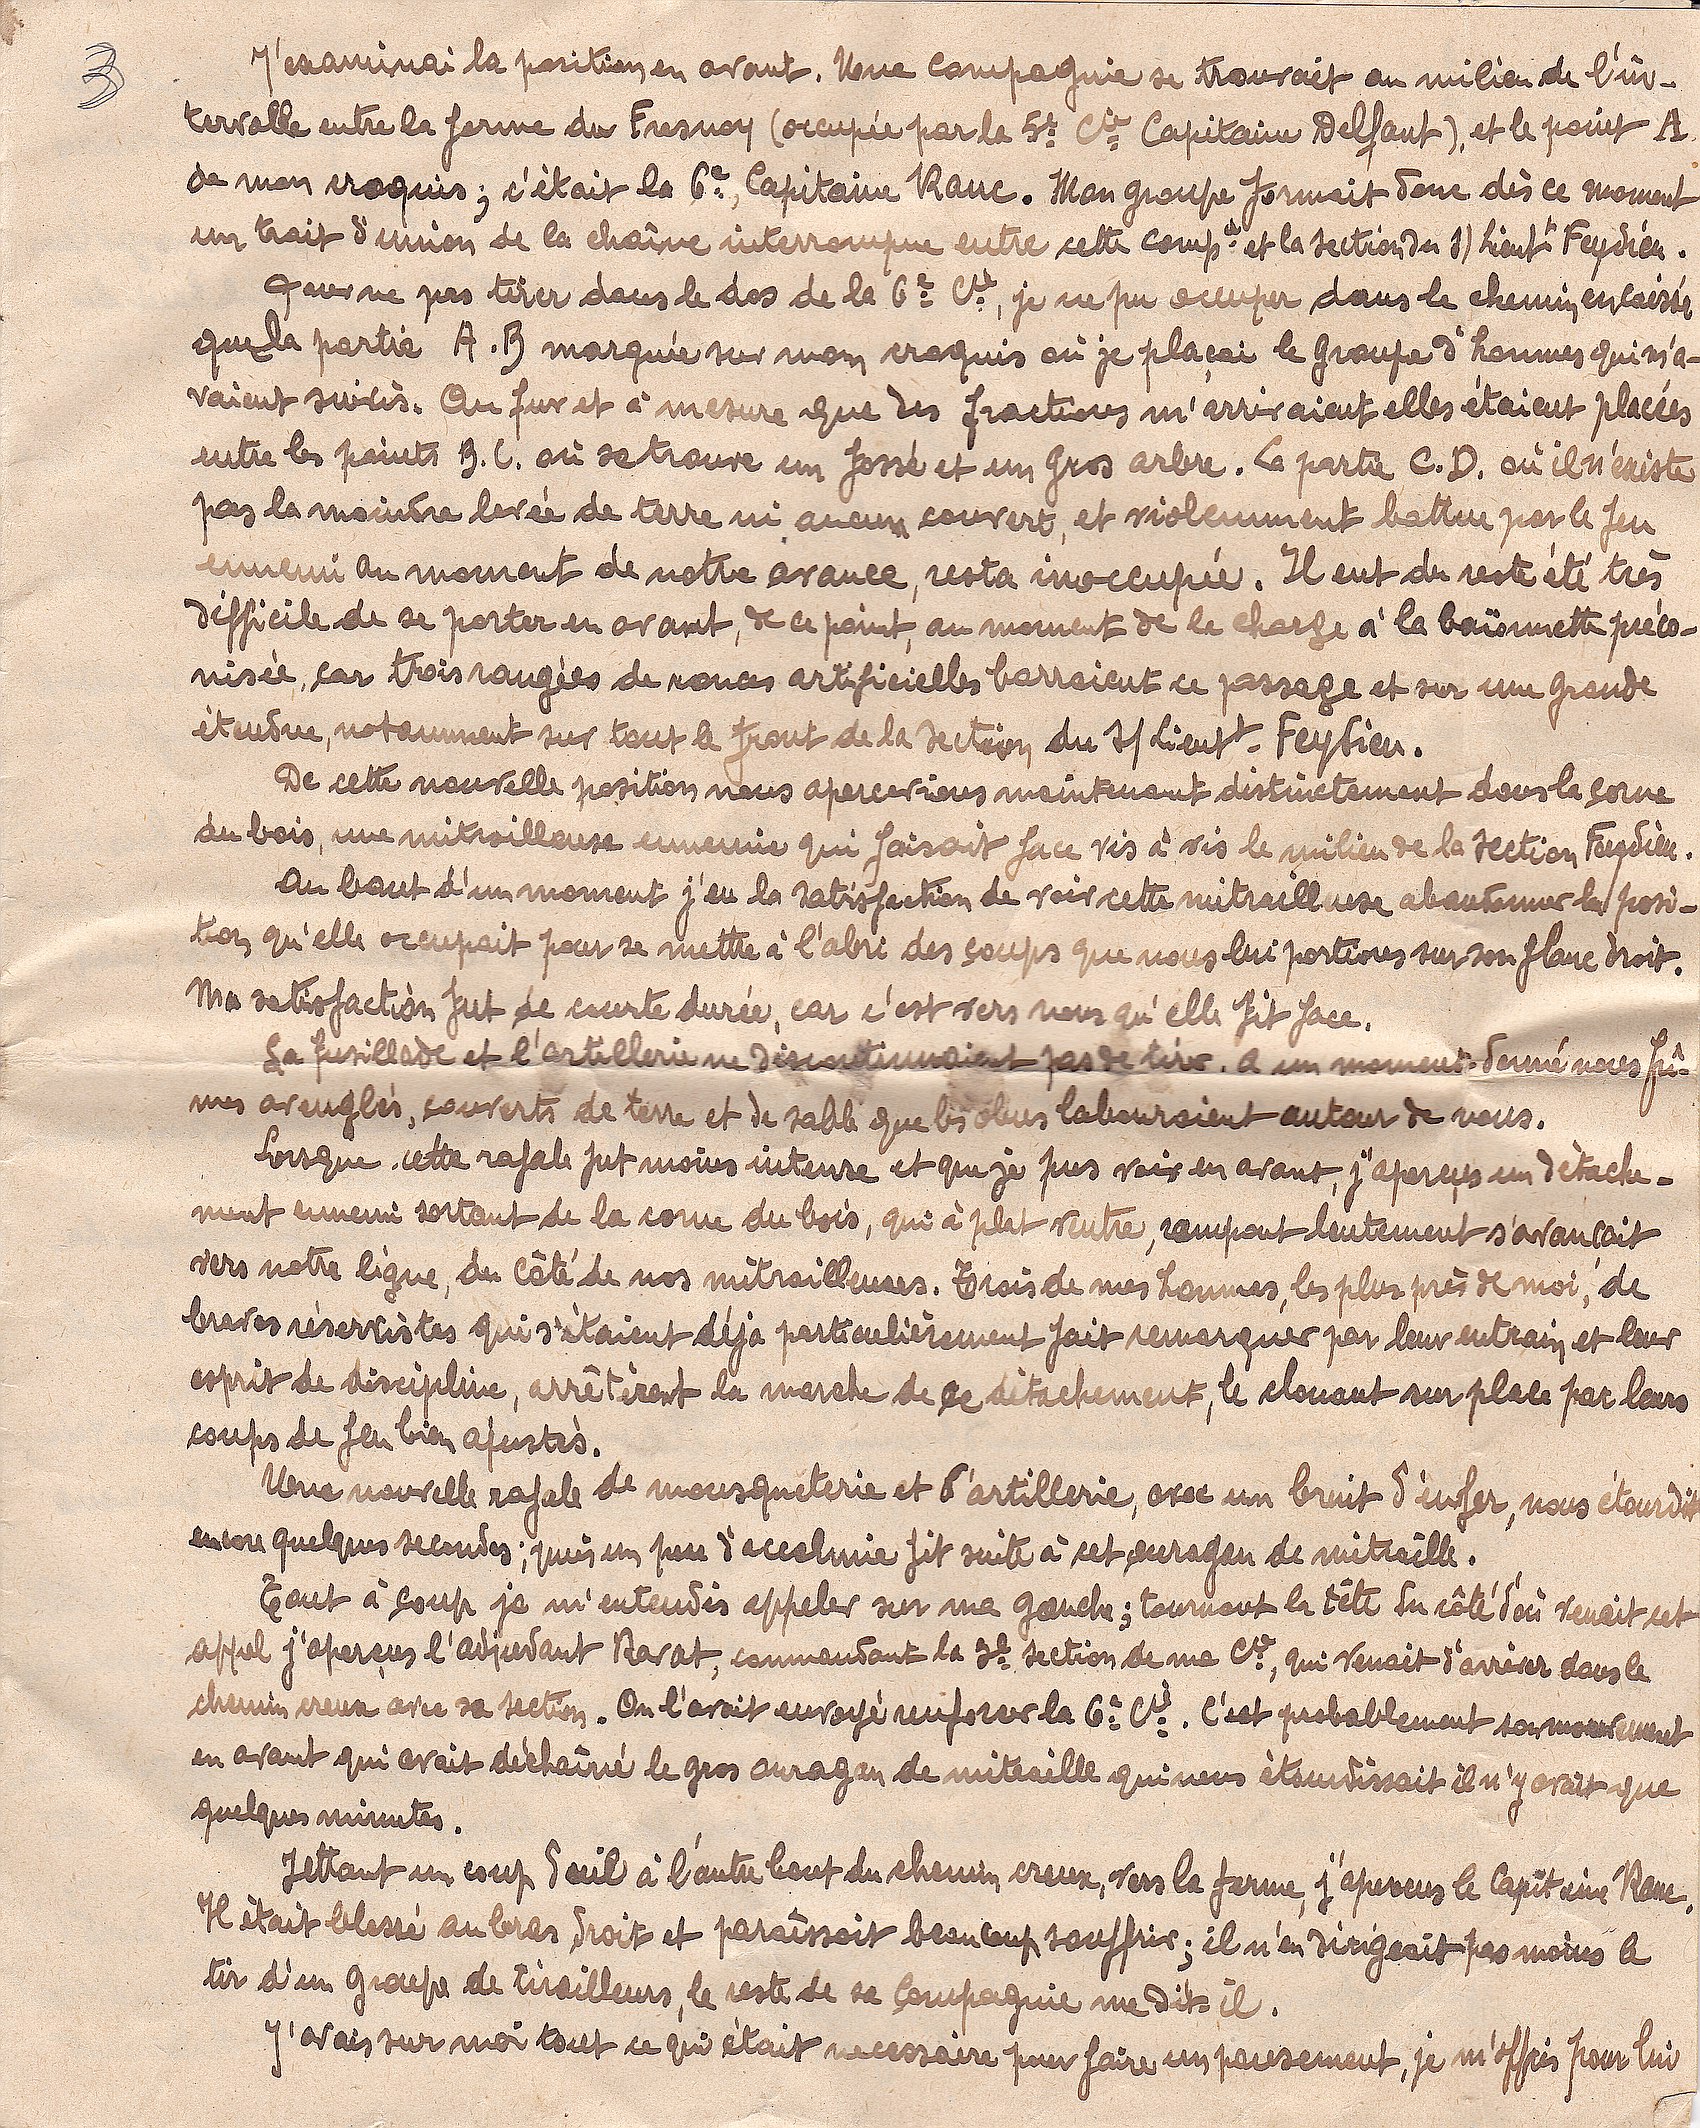 3
J'examinai la position en avant. Une compagnie se trouvait au milieu de l'in-
tervalle entre la ferme du Fresnoy (occupée par la 5e Cie Capitaine Delfaut), et le point A
de mon croquis; c'était la 6e, Capitaine Ranc. Mon groupe formait donc dès ce moment
un trait d'union de la chaîne interrompue entre cette compie et la section du S/ Lieutt Feydieu.
Pour ne pas tirer dans le dos de la 6e Cie, je ne pu occuper dans le chemin encaissé
que la partie A.B marquée sur mon croquis où je plaçai le groupe d'hommes qui m'a-
vaient suivis. Au fur et à mesure que des fractions m'arrivaient elles étaient placées
entre les points B.C. où se trouve un fossé et un gros arbre. La partie C.D. où il n'existe
pas la moindre levée de terre ni aucun couvert, et violemment battue par le feu
ennemi au moment de notre avance, resta inoccupée. Il eut du reste été très
difficile de se porter en avant, de ce point, au moment de la charge à la baïonnette préco-
nisée, car trois rangées de ronces artificielles barraient ce passage et sur une grande
étendue, notamment sur tout le front de la section du S/ Lieutt. Feydieu.
De cette nouvelle position nous apercevions maintenant distinctement dans la corne
du bois, une mitrailleuse ennemie qui faisait face vis à vis le milieu de la section Feydieu.
Au bout d'un moment j'eu la satisfaction de voir cette mitrailleuse abandonner la posi-
tion qu'elle occupait pour se mettre à l'abri des coups que nous lui portions sur son flanc droit.
Ma satisfaction fut de courte durée, car c'est vers nous qu'elle fit face.
La fusillade et l'artillerie ne discontinuaient pas de tirer. A un moment donné nous fû-
mes aveuglés, couverts de terre et de sable que les obus labouraient autour de nous.
Lorsque cette rafale fut moins intense et que je pus voir en avant, j'aperçus un détache-
ment ennemi sortant de la corne du bois, qui à plat ventre, rampant lentement s'avançait
vers notre ligne, du côté de nos mitrailleuses. Trois de mes hommes, les plus près de moi, de
braves réservistes qui s'étaient déjà particulièrement fait remarquer par leur entrain et leur
esprit de discipline, arrêtèrent la marche de ce détachement, le clouant sur place par leurs
coups de feu bien ajustés.
Une nouvelle rafale de mousqueterie et d'artillerie, avec un bruit d'enfer, nous étourdit
encore quelques secondes; puis un peu d'accalmie fit suite à cet ouragan de mitraille.
Tout à coup je m'entendis appeler sur ma gauche; tournant la tête du côté d'où venait cet
appel j'aperçus l'adjudant Ravat, commandant la 3e section de ma Cie, qui venait d'arriver dans le
chemin creux avec sa section. On l'avait envoyé renforcer la 6e Cie. C'est probablement son mouvement
en avant qui avait déchaîné le gros ouragan de mitraille qui nous étourdissait il n'y avait que
quelques minutes.
Jettant un coup d'œil à l'autre bout du chemin creux, vers la ferme, j'aperçus le Capitaine Ranc.
Il était blessé au bras droit et paraissait beaucoup souffrir; il n'en dirigeait pas moins le
tir d'un groupe de tirailleurs, le reste de sa Compagnie me dit-il.
J'avais sur moi tout ce qui était nécessaire pour faire un pansement, je m'offris pour lui